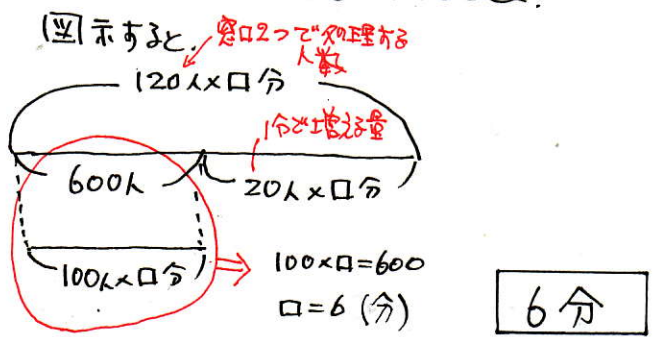 図示すると、
窓口2つで処理する
人数
120人×□分
1分で増える量
600人
20人×□分
100人×□分
100×□=600
□=6(分)
6分